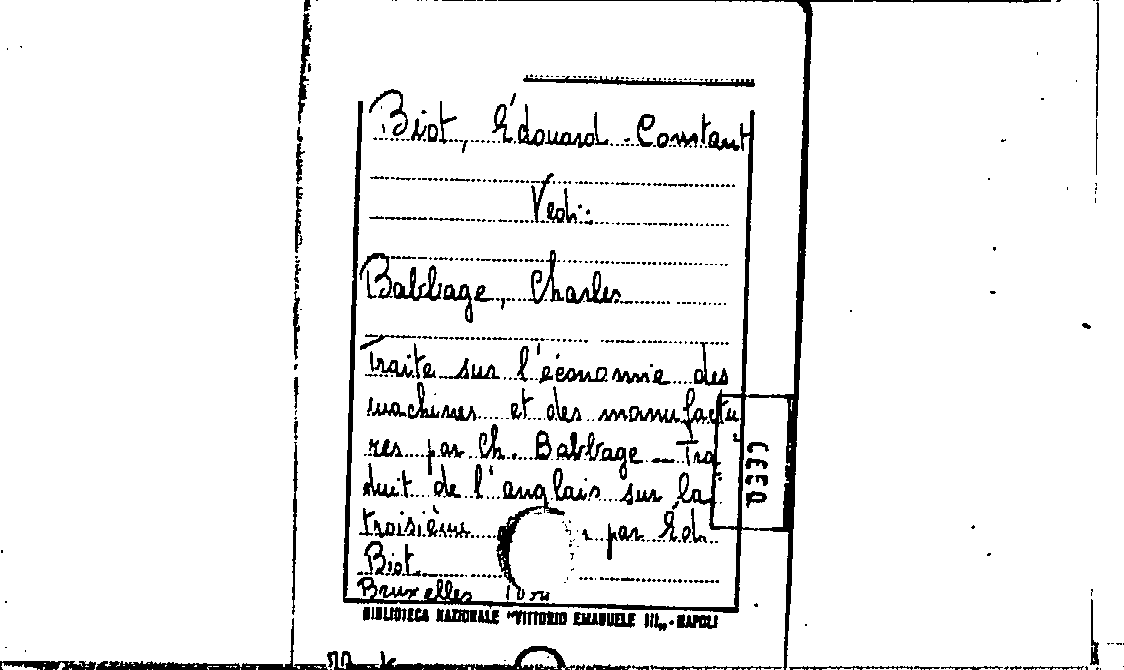 Biot, Édouard-Constant
Vedi:
Babbage, Charles
Traite sur l'économie des
machines et des manufactu
res par Ch. Babbage - Tra
duit de l'anglais sur la
troisième par Éd.
Biot
Bruxelles
BIBLIOTECA NAZIONALE "VITTORIO EMANUELE III„ - NAPOLI